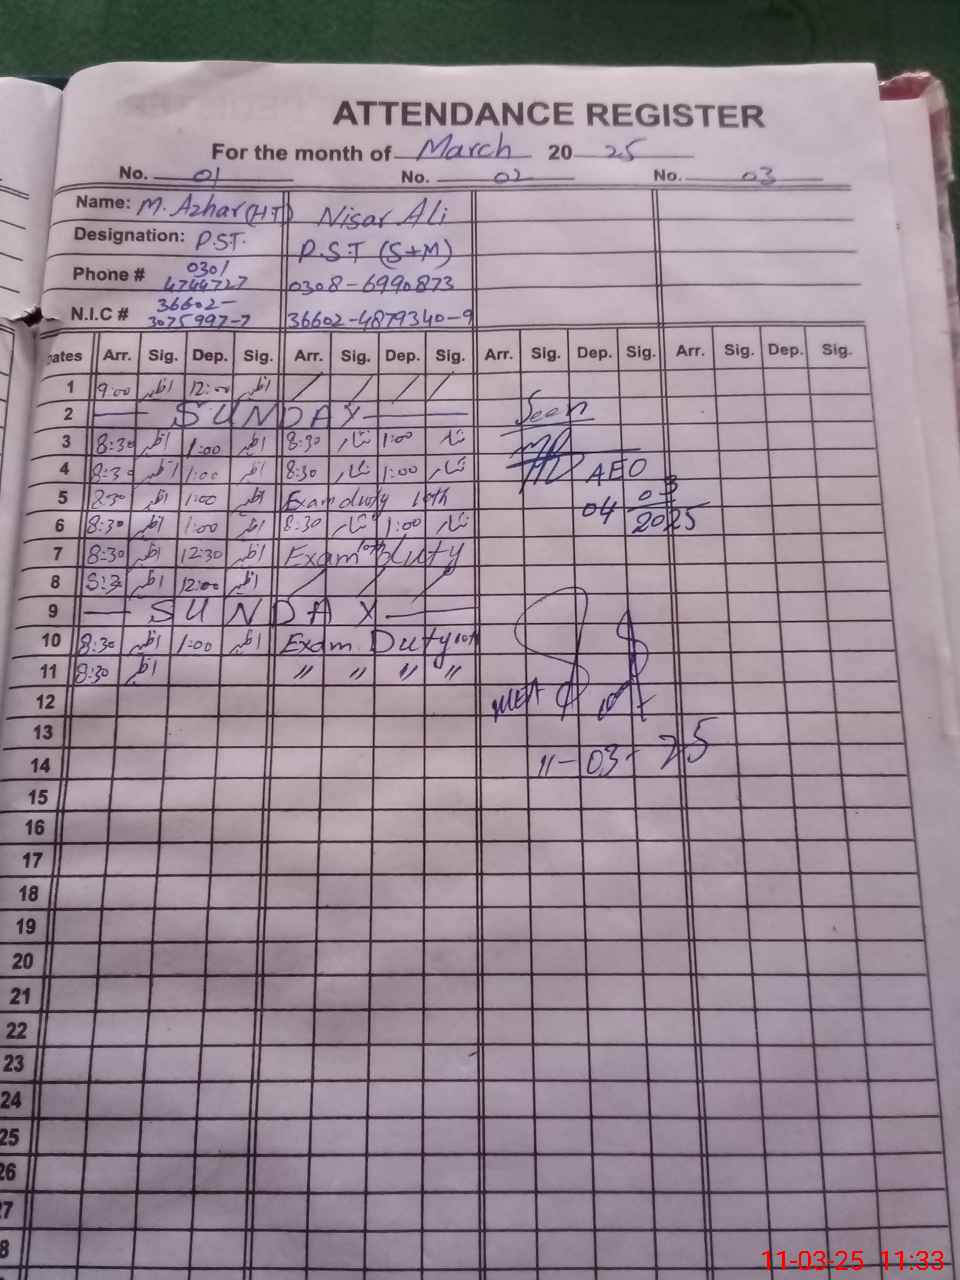 ATTENDANCE REGISTER
For the month of March 20 25
No. 01 No. 02 No. 03
Name: M. Azhar (HT) Nisar Ali
Designation: P.ST. P.S.T (S+M)
Phone # 0301 4744727 0308-6990873
N.I.C # 36602-3075997-7 36602-4879340-9
Dates Arr. Sig. Dep. Sig. Arr. Sig. Dep. Sig. Arr. Sig. Dep. Sig. Arr. Sig. Dep. Sig.
1 9:00 اظہر 12:00 اظہر / / / /
2 SUNDAY
3 8:30 اظہر 1:00 اظہر 8:30 نثار 1:00 نثار
4 8:30 اظہر 1:00 اظہر 8:30 نثار 1:00 نثار
5 8:30 اظہر 1:00 اظہر Exam duty 10th
6 8:30 اظہر 1:00 اظہر 8:30 نثار 1:00 نثار
7 8:30 اظہر 12:30 اظہر Exam 10th Duty
8 8:3 اظہر 12:00 اظہر / / /
9 SUNDAY
10 8:30 اظہر 1:00 اظہر Exam Duty 10th
11 8:30 اظہر " " " "
12
13
14
15
16
17
18
19
20
21
22
23
24
25
26
27
8
Seen
AEO
04 03 2025
MEA
11-03-25
11-03-25 11:33